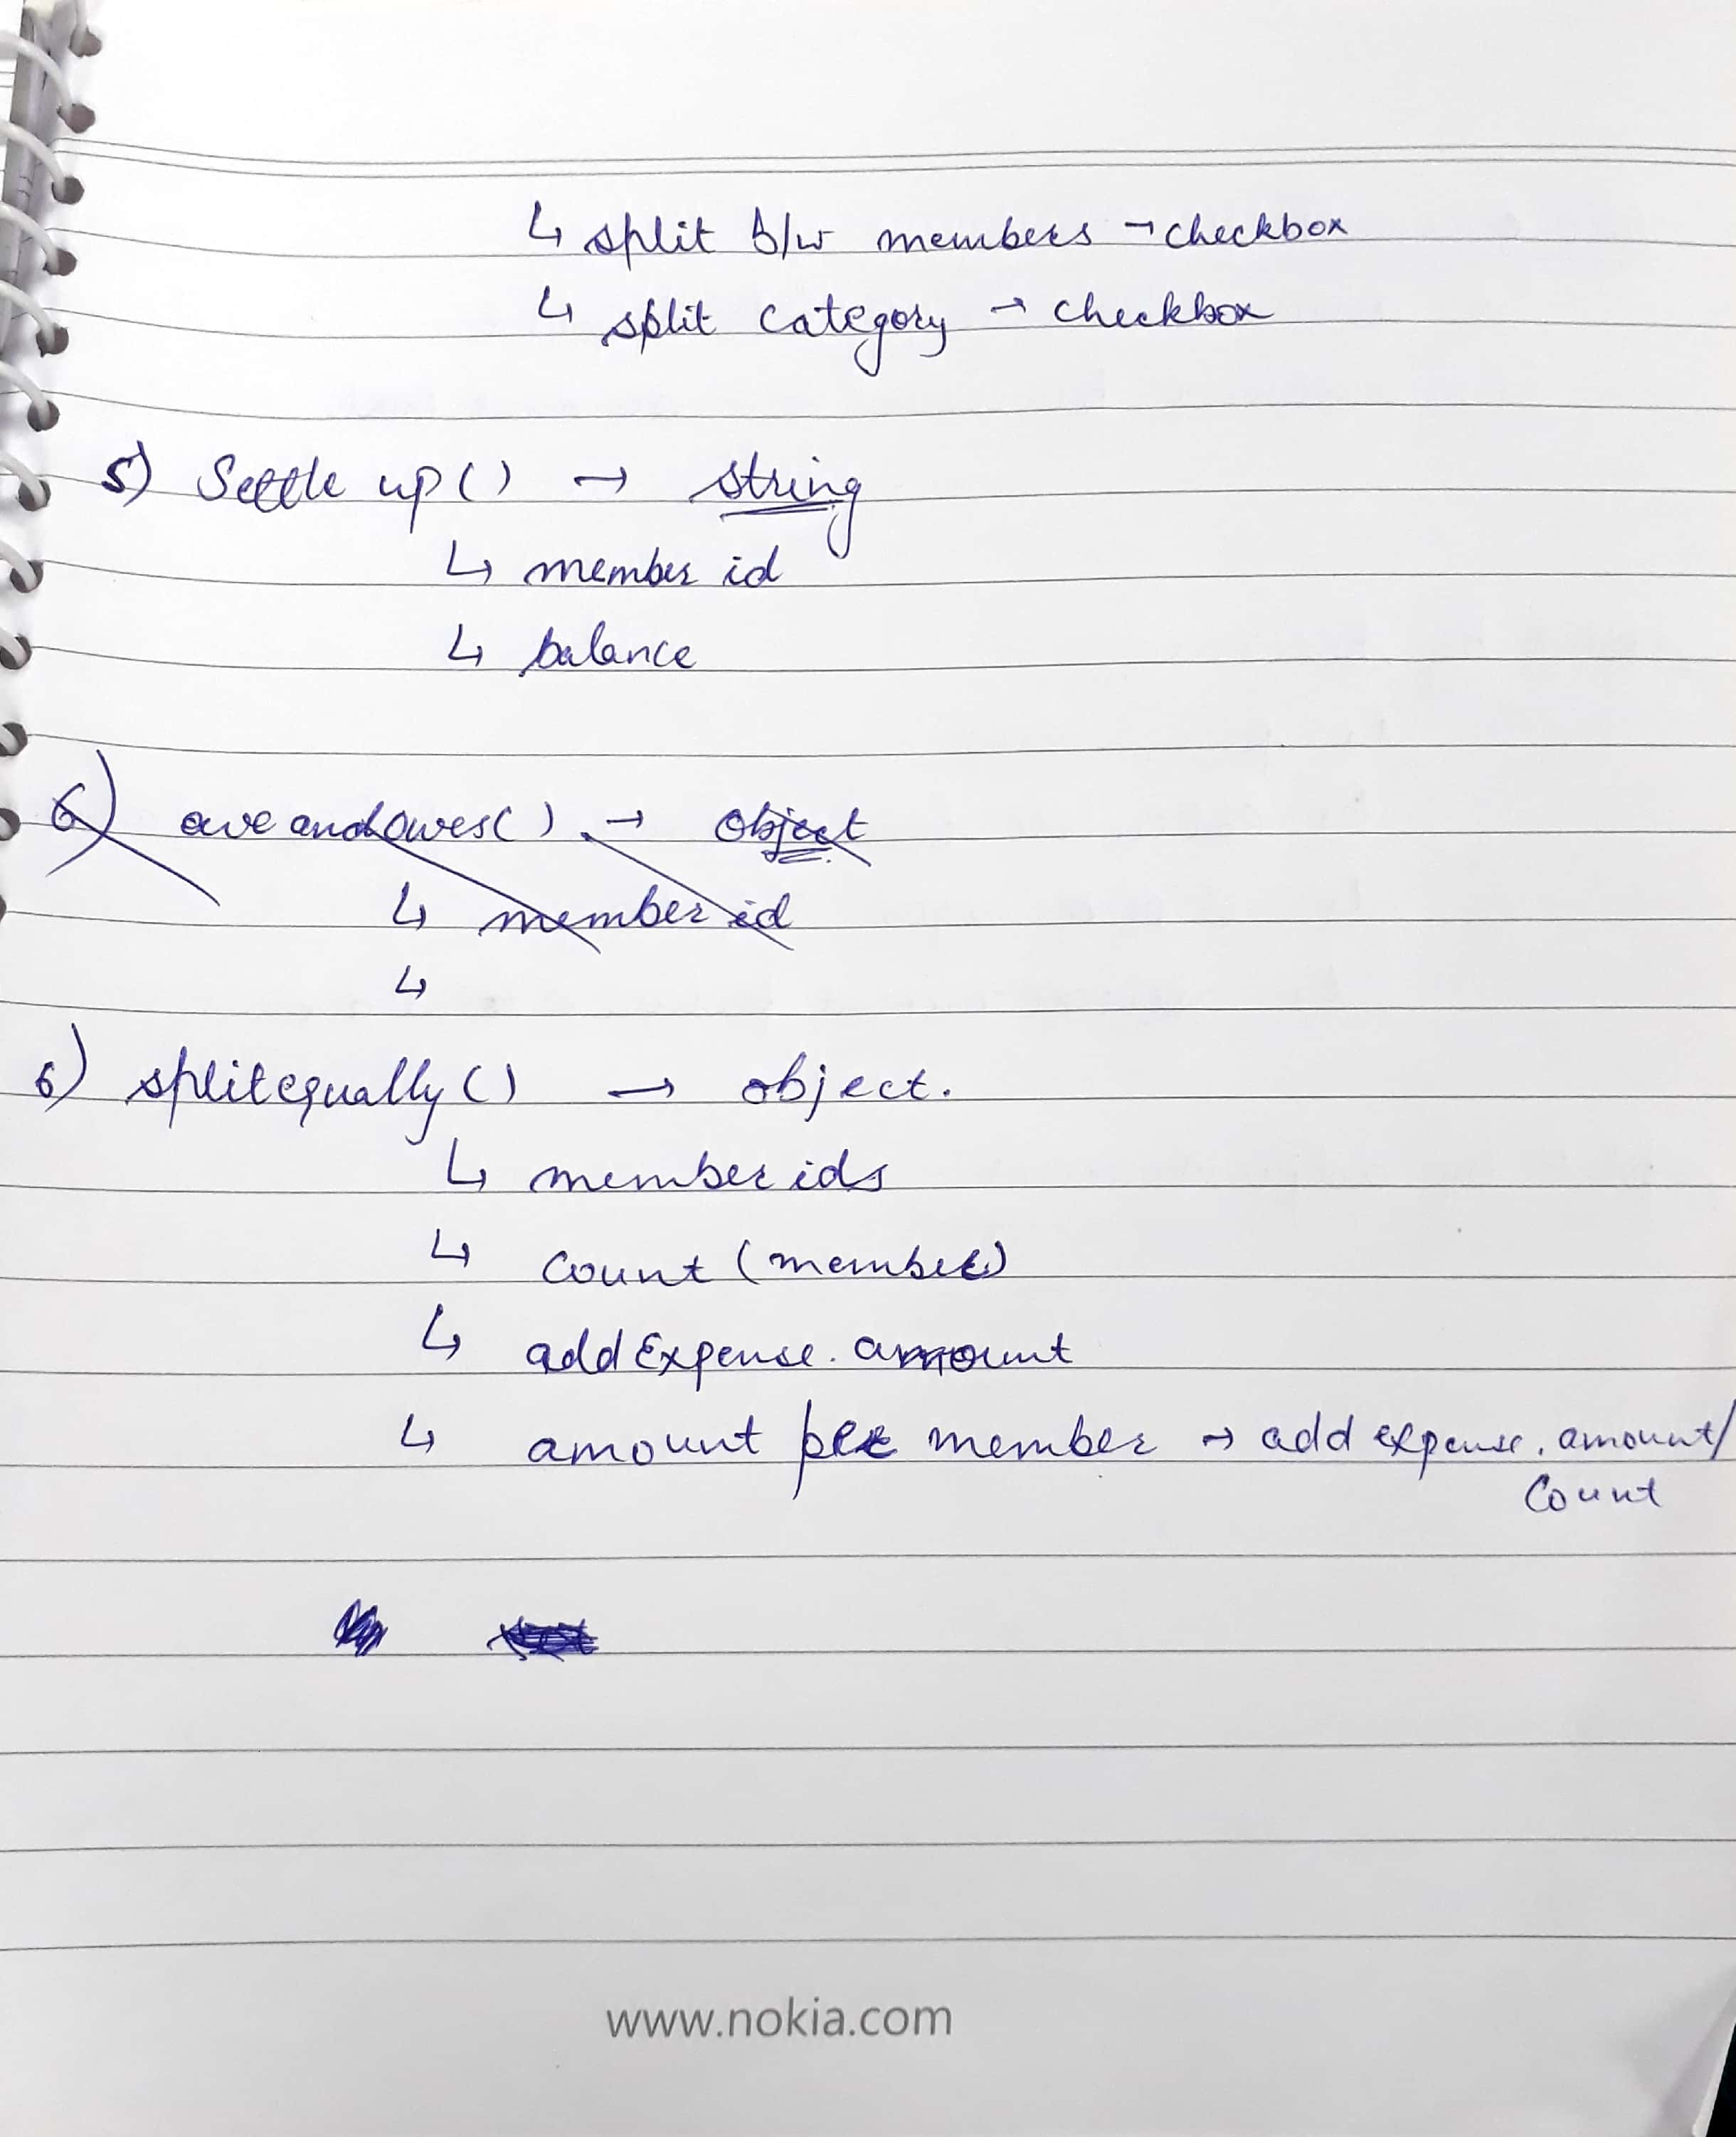 ↳ split b/w members → checkbox
↳ split category → checkbox
5) Settle up() → string
↳ member id
↳ balance
6) owe andowes() → object
↳ member id
↳
6) splitequally() → object.
↳ member ids
↳ count (member)
↳ addExpense. amount
↳ amount per member → add expense. amount/
Count
www.nokia.com